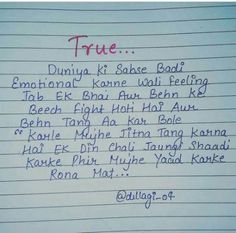 True...
Duniya Ki Sabse Badi
Emotional Karne Wali Feeling
Jab EK Bhai Aur Behn Ke
Beech Fight Hoti Hai Aur
Behn Tang Aa Kar Bole
"Karle Mujhe Jitna Tang Karna
Hai EK Din Chali Jaungi Shaadi
Karke Phir Mujhe Yaad Karke
Rona Mat...
@dillagi_04